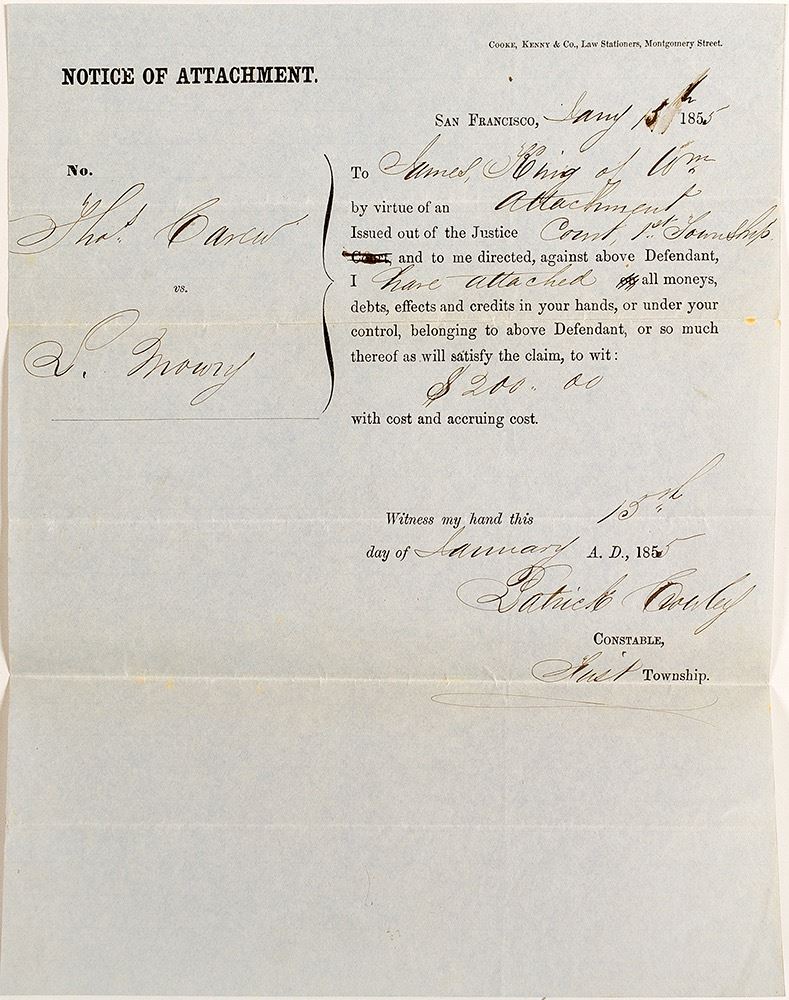 COOKE, KENNY & CO., Law Stationers, Montgomery Street.
NOTICE OF ATTACHMENT.
SAN FRANCISCO, Jany 15th 1855
No.
Thos. Carew
vs.
L. Mowry
To James, King of Wm
by virtue of an Attachment
Issued out of the Justice Court, 1st Township
and to me directed, against above Defendant,
I have attached all moneys,
debts, effects and credits in your hands, or under your
control, belonging to above Defendant, or so much
thereof as will satisfy the claim, to wit:
$200.. 00
with cost and accruing cost.
Witness my hand this 15th
day of January A. D., 1855
Patrick Crowley
CONSTABLE,
First Township.